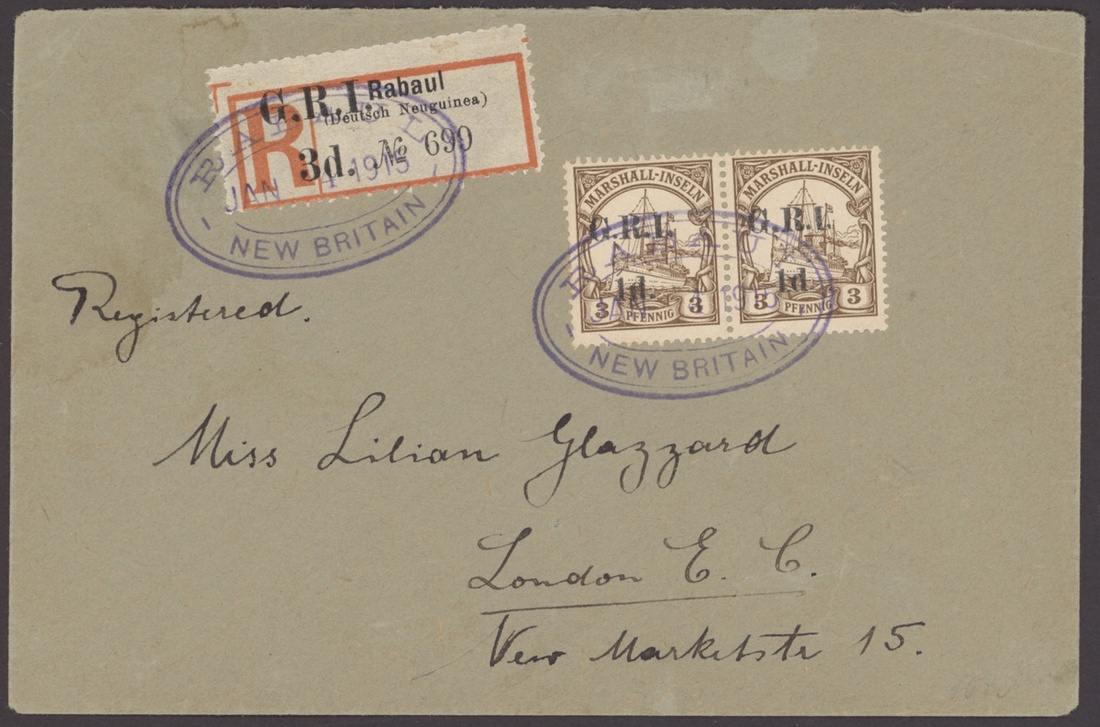 G.R.I. Rabaul
(Deutsch Neuguinea)
R
3d. № 699
RABAUL
JAN 4 1915
NEW BRITAIN
MARSHALL-INSELN
G.R.I.
1d.
3 PFENNIG 3
MARSHALL-INSELN
G.R.I.
1d.
3 PFENNIG 3
RABAUL
JAN 1915
NEW BRITAIN
Registered.
Miss Lilian Glazzard
London E. C.
New Marketstr 15.